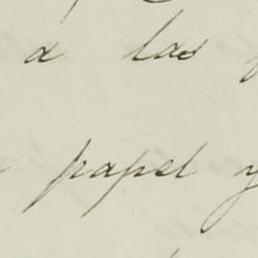 a las
papel y